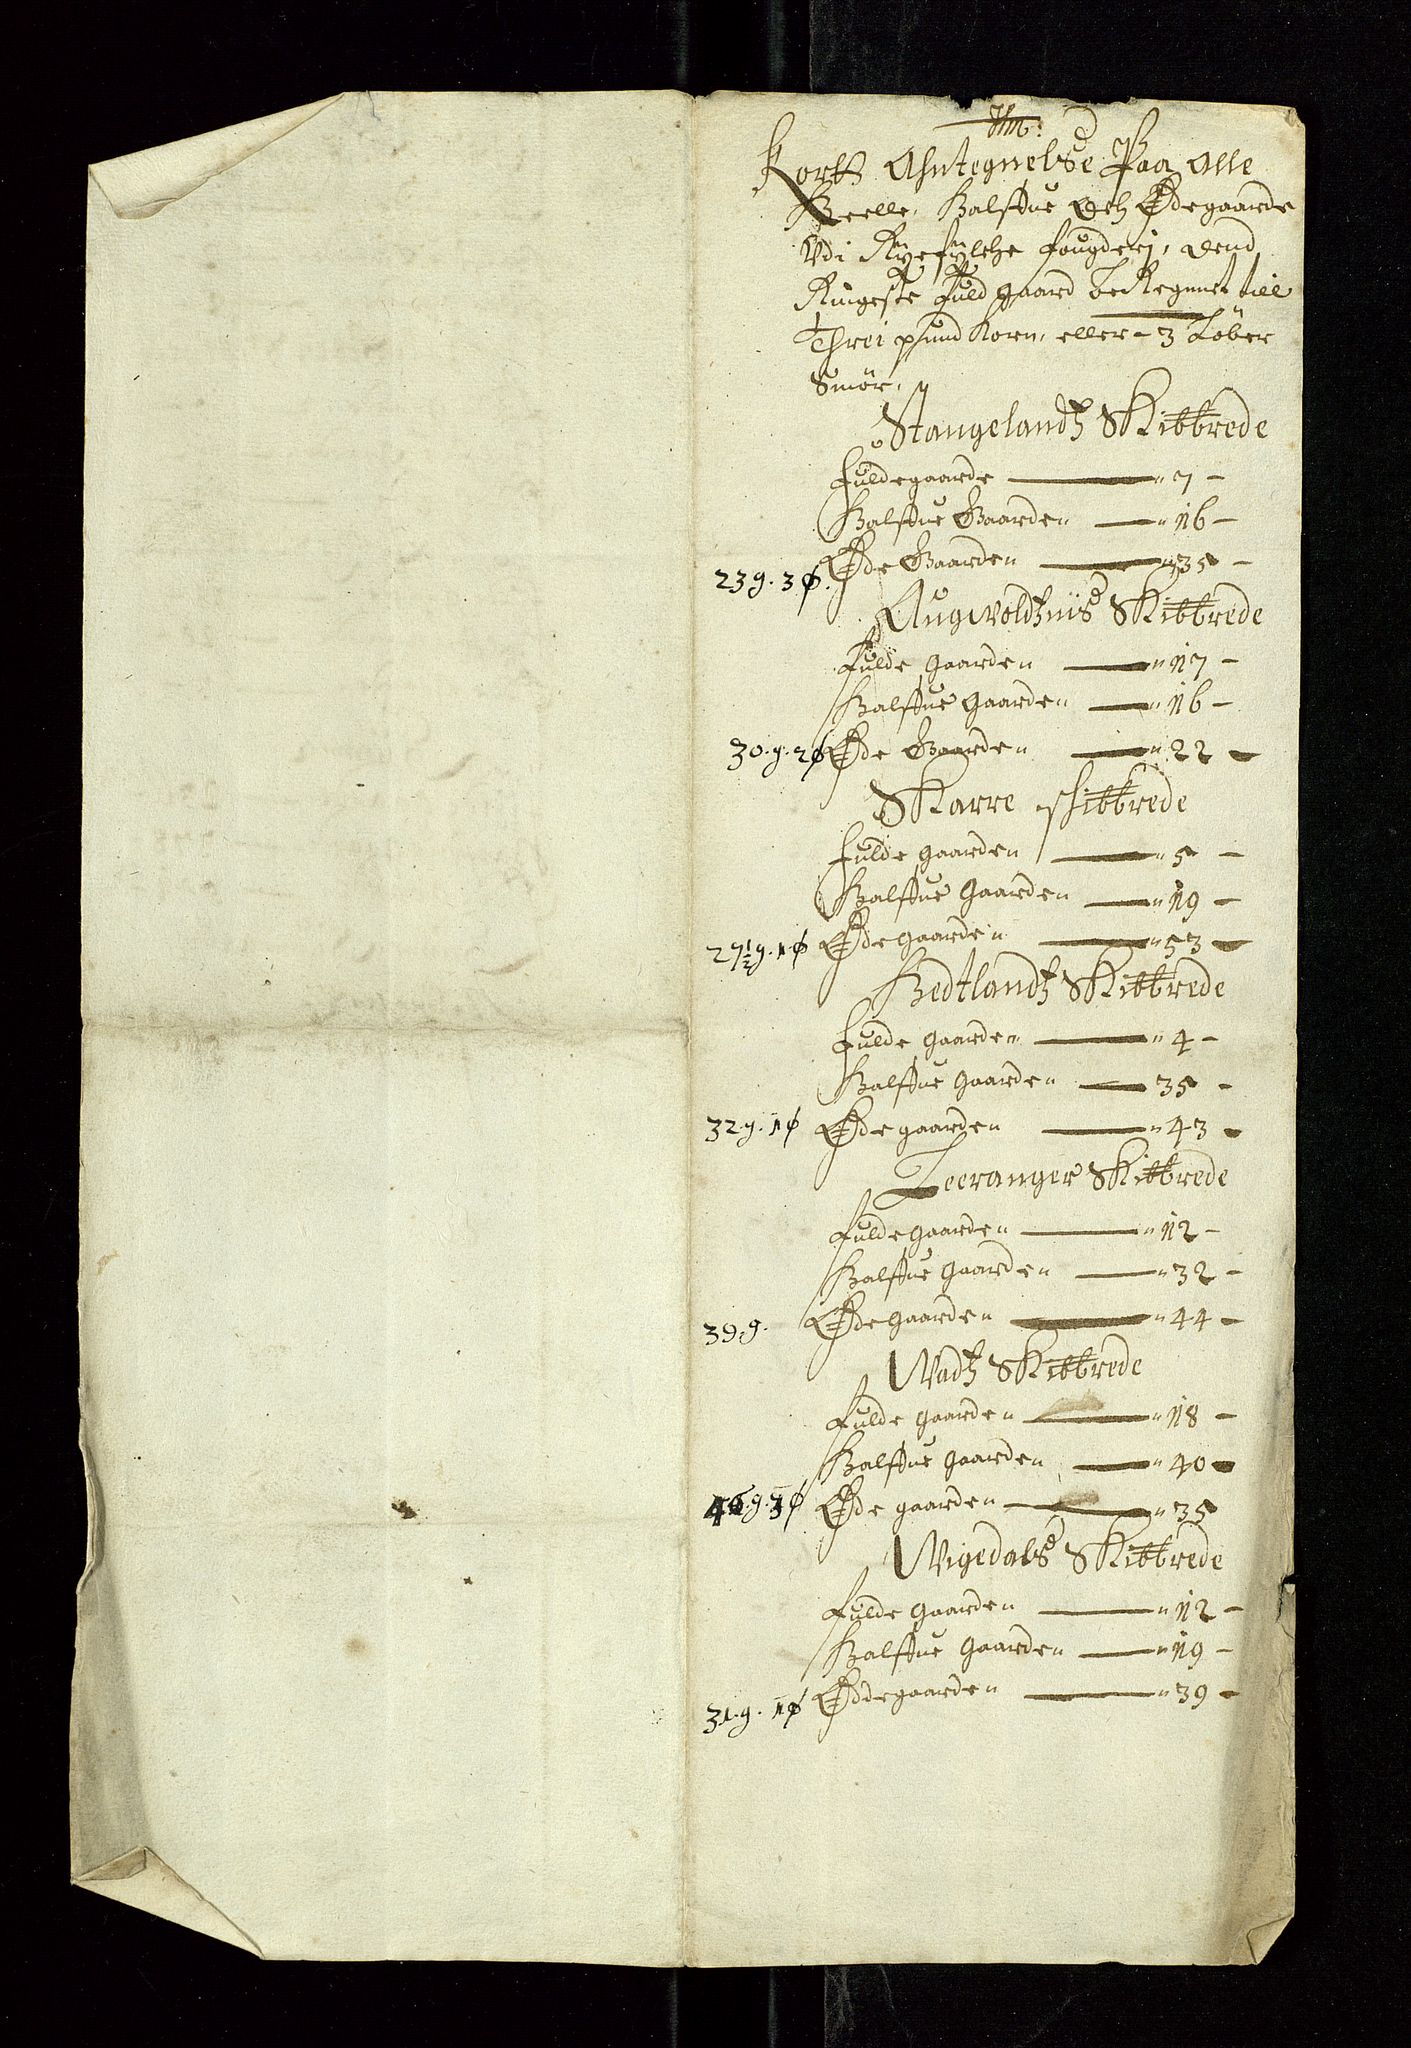 Kortt Ahntegnelse Paa Alle
Heelle, Halffue Och Ødegaarde
Vdi Ryefylche fougderj, dend
Ringeste fuld gaard beRegnet till
Threi pund Korn, eller - 3 Løber
Smör,
Stangelandtz Skibbrede
fuldegaarde - 7 -
Halffue Gaarden - 16 -
23 g. 3 ø. Øde Gaarden - 35 -
Augwoldtznis Skibbrede
fulde gaarden - 17 -
Halffue gaarden - 16 -
30. g. 2 ø Øde Gaarden - 22 -
Skarre schibbrede
fulde gaarden - 5 -
Halffue Gaarden - 19 -
27½ g. 1 ø Øde gaarden - 53 -
Hedtlandtz Skibbrede
fulde gaarden - 4 -
Halffue gaarden - 35 -
32. g. 1 ø Øde gaarden - 43 -
Leeranger Skibbrede
fulde gaarden - 12 -
Halffue gaarden - 32 -
39. g. Øde gaarden - 44 -
Wadtz Skibbrede
fulde gaarden - 18 -
Halffue gaarden - 40 -
46. g. 3 ø Øde gaarden - 35
Wigedals Skibbrede
fulde gaarden - 12 -
Halffue gaarden - 19 -
31. g. 1 ø Øddegaarden - 39 -